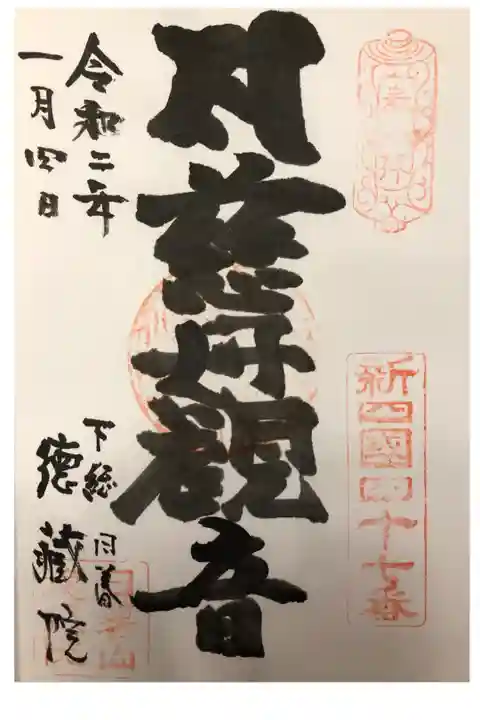 新四國四十七番
慈母觀音
令和二年
一月四日
下総 日暮
德藏院